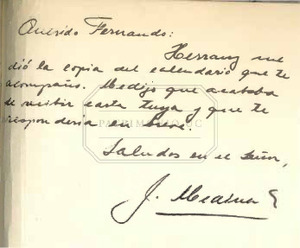 Querido Fernando:
Herranz me
dió la copia del calendario que te
acompaño. Me dijo que acababa
de recibir carta tuya y que te
respondería en breve.
Saludos en el Señor,
J. Medina E